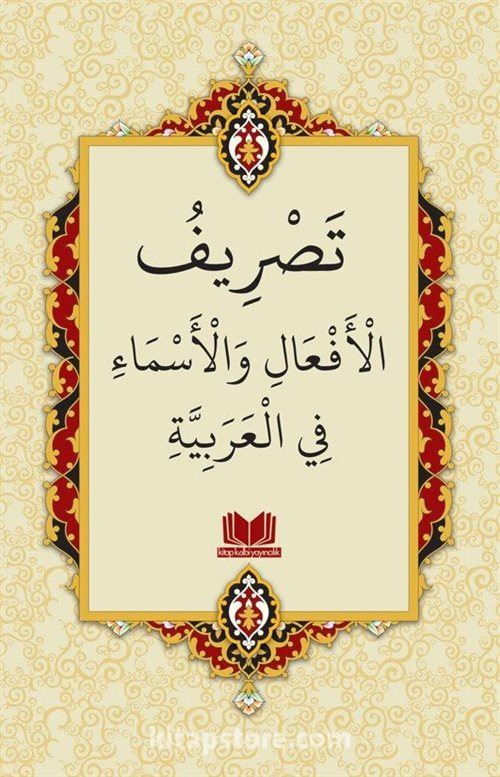 تَصْرِيفُ
الْأَفْعَالِ وَالْأَسْمَاءِ
فِي الْعَرَبِيَّةِ
kitap kalbi yayıncılık
kitapstore.com